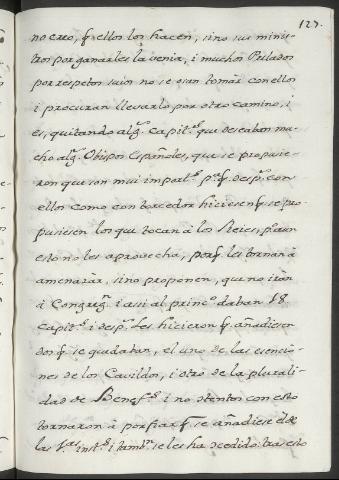 127.
no creo, q̃ ellos los hacen, sino sus minis-
tros por ganarles la venia, i muchos Prelados
por respetos suios no se osan tomár con ellos
i procuran llevarlo por otro camino, i
es, quitando alg.s capit.s que deseaban mu-
cho alg.s Obispos Españoles, que se propusie-
ron que son mui import.s p.a q̃ desp.s con
ellos como con torcedor hiciesen q̃ se pro-
pusiesen los que tocan à los Reies, p.o aun
esto no les aprovecha, porq̃ les tornan à
amenazàr, sino proponen, que no iràn
à Congreg.n i asi al princ.o daban 18
Capit.s i desp.s les hicieron q̃ añadiesen
dos q̃ se quedaban, el uno de las esencio-
nes de los Cavildos, i otro de la plurali-
dad de Benef.s i no stentos con esto
tornaron à porfiar q̃ se añadiese el de
las inst.s i tamb.n se les ha cedido: tras esto